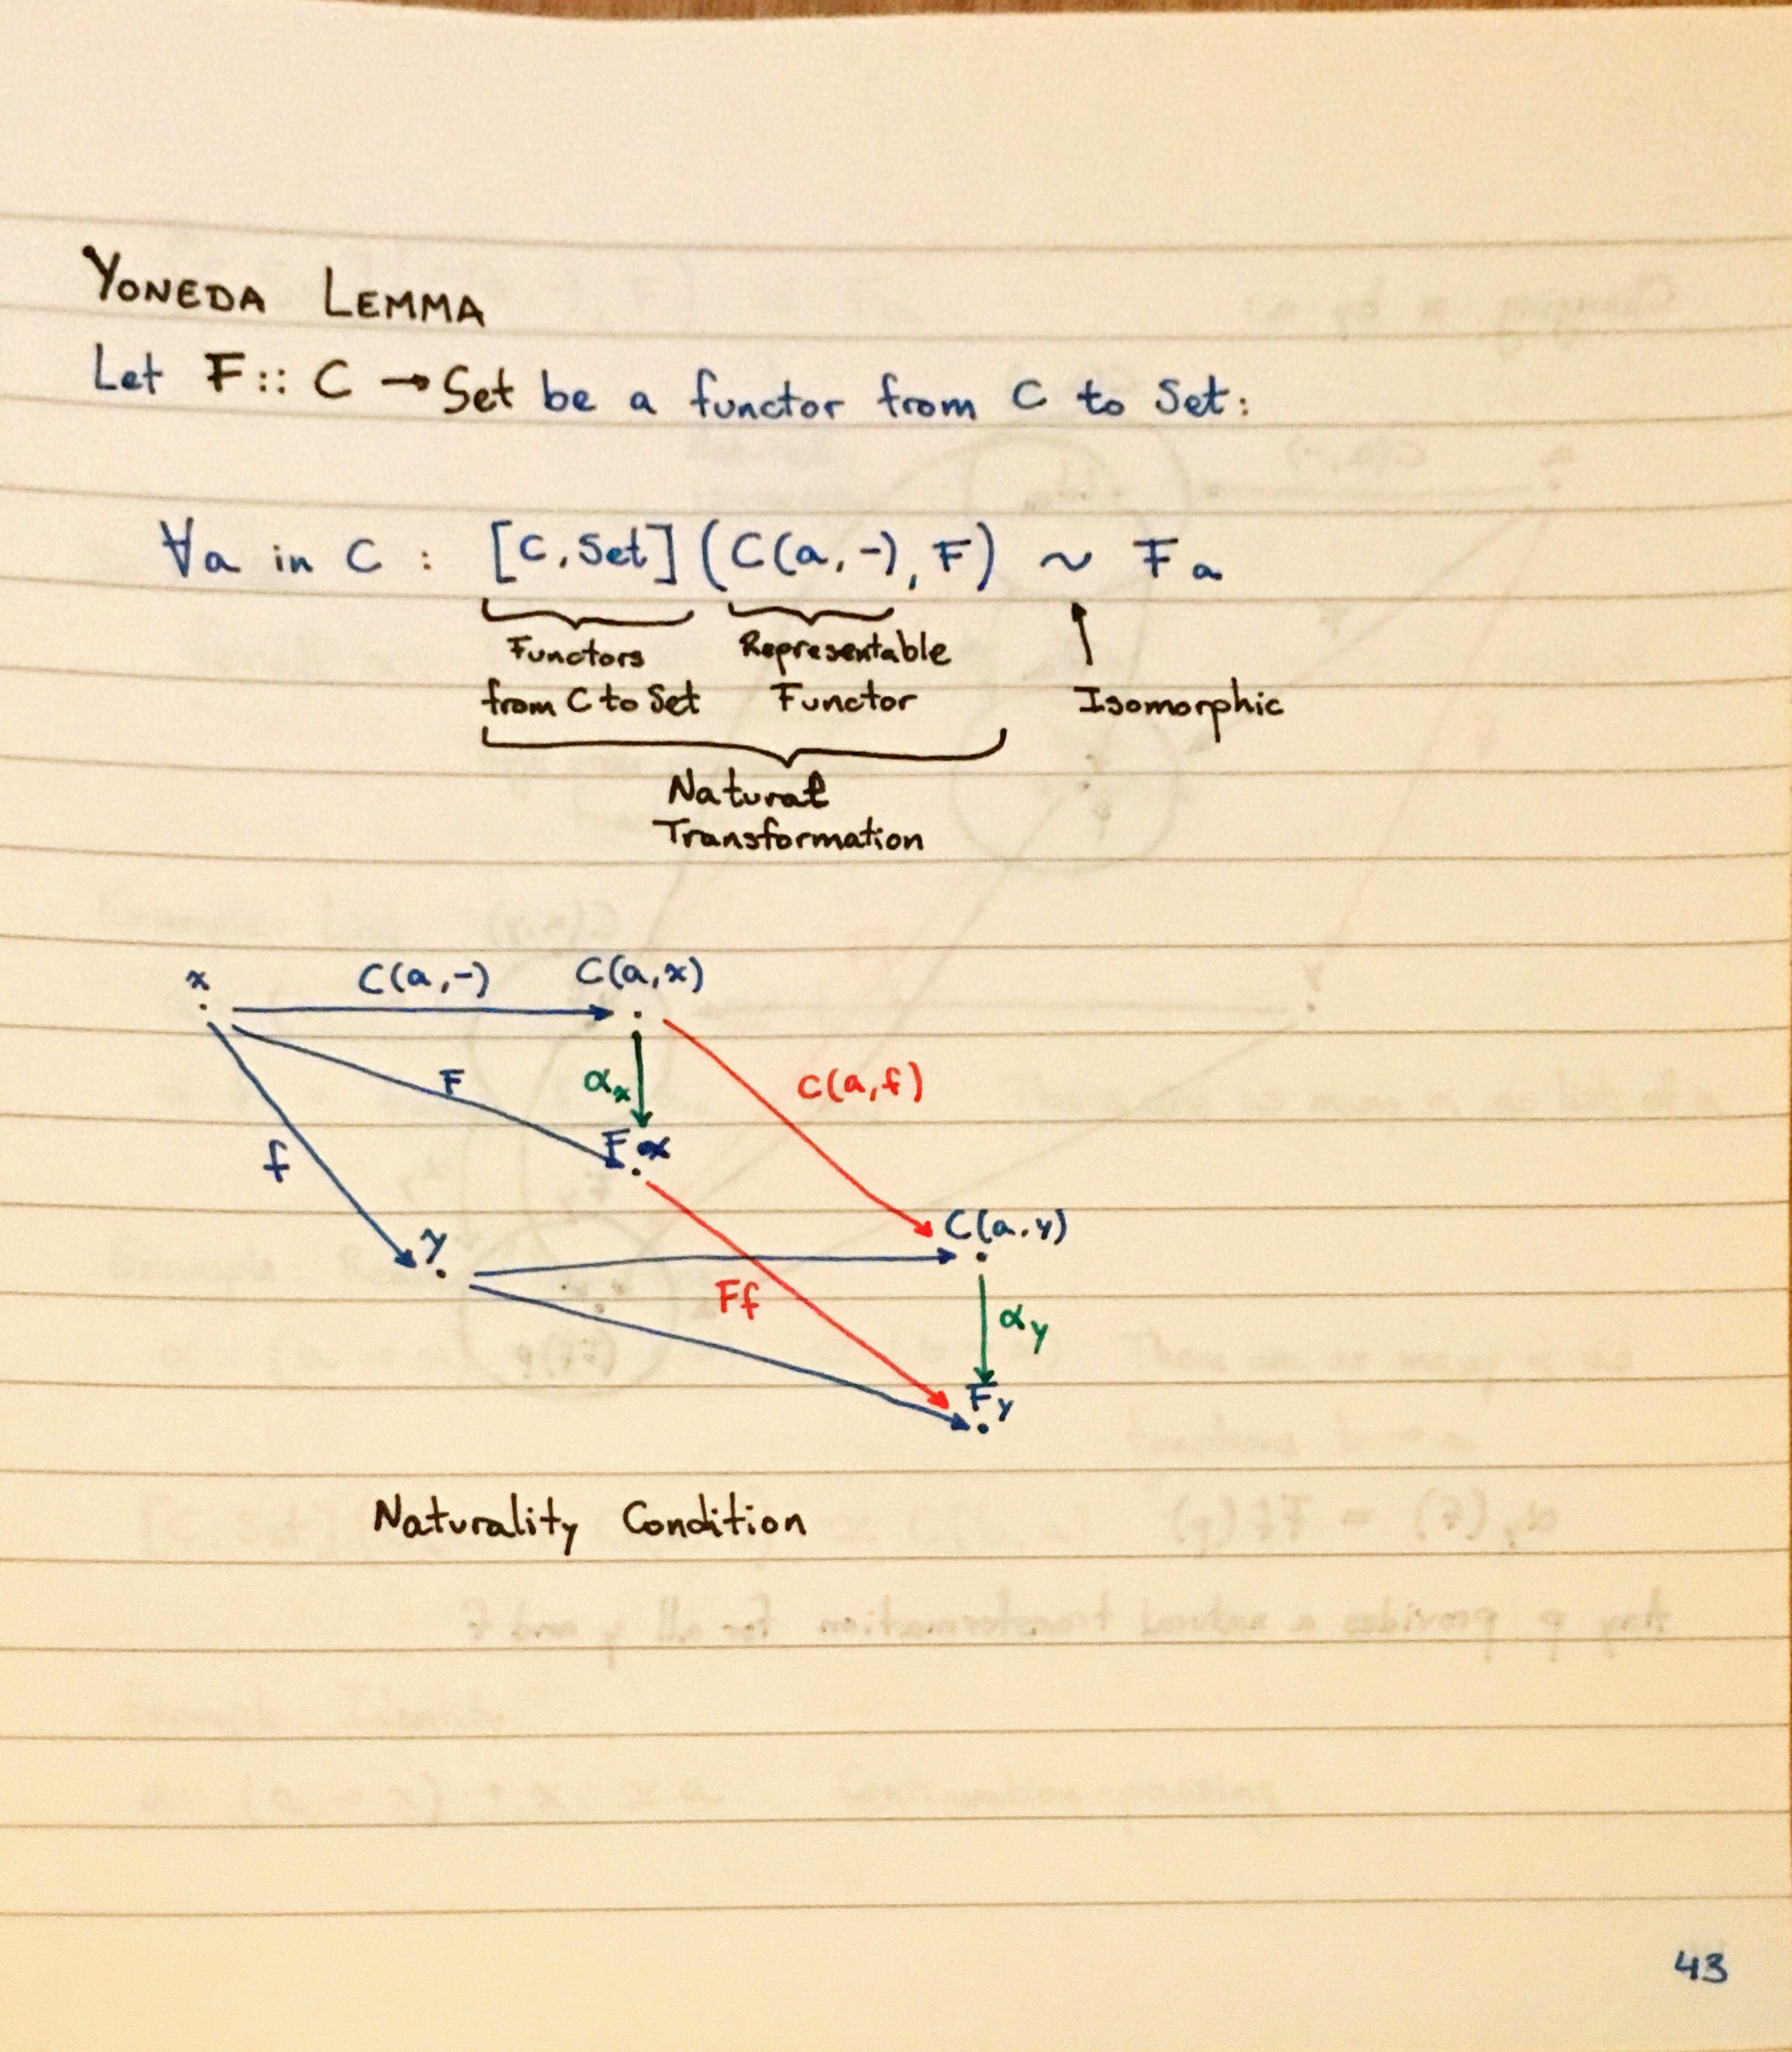 YONEDA LEMMA
Let F :: C → Set be a functor from C to Set:
∀a in C : [C, Set] (C(a,-), F) ~ Fa
Functors Representable
from C to Set Functor Isomorphic
Natural
Transformation
x C(a,-) C(a,x)
F αx C(a,f)
f Fx
y C(a,y)
Ff αy
Fy
Naturality Condition
43